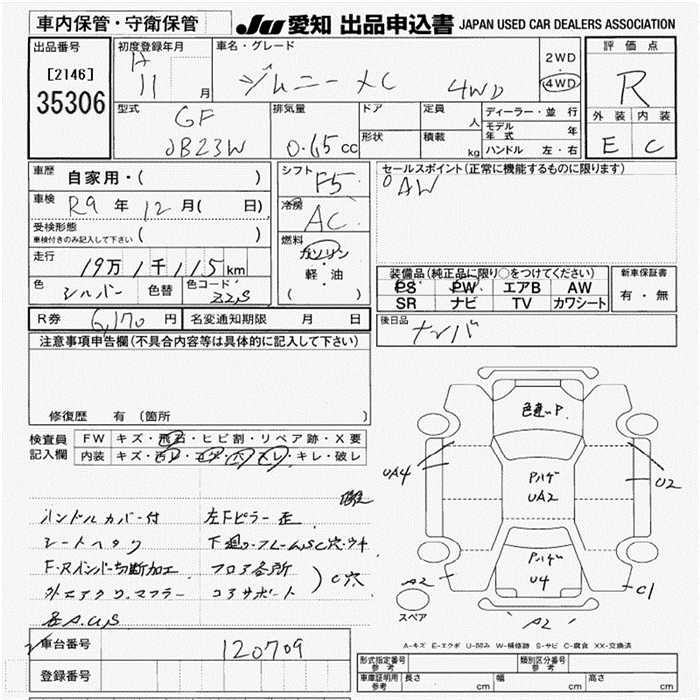 車内保管・守衛保管
JU 愛知 出品申込書 JAPAN USED CAR DEALERS ASSOCIATION
出品番号
[2146]
35306
初度登録年月
H
11 月
車名・グレード
ジムニー XC 4WD
2WD
・
4WD
評価点
R
外装 内装
E C
型式
GF
JB23W
排気量
0.65 cc
ドア
形状
定員
人
積載
kg
ディーラー・並行
モデル年式 年
ハンドル 左・右
車歴 自家用・( )
車検 R9 年 12 月( 日)
受検形態
車検付きのみ記入して下さい ( )
走行 19万 1千 115 km
色 シルバー 色替 色コード Z2S
シフト F5
冷房 AC
燃料
ガソリン
・
軽・油
( )
セールスポイント(正常に機能するものに限ります)
AW
装備品(純正品に限り○をつけてください)
PS PW エアB AW
SR ナビ TV カワシート
新車保証書
有・無
R券 6,170 円 名変通知期限 月 日
後日品 ナンバ
注意事項申告欄(不具合内容等は具体的に記入して下さい)
修復歴 有 (箇所
検査員
記入欄
FW キズ・飛石・ヒビ割・リペア跡・X要
内装 キズ・汚レ・コゲ・穴・スレ・キレ・破レ
ハンドルカバー付 左Fピラー歪
シートヘタリ 下廻り・フレームSC穴・ウチ
F・Rインパー切断加工 フロア各所
外エアクリ、マフラー コアサポート )C穴
色違いP.
Pハゲ
UA2
Pハゲ
U4
UA4
U2
A2
C1
A2
スペア
A-キズ E-エクボ U-凹み W-補修跡 S-サビ C-腐食 XX-交換済
車台番号 120709
登録番号
型式指定番号
参考
類別区分番号
参考
車庫証明用
参考
長さ cm 幅 cm 高さ cm